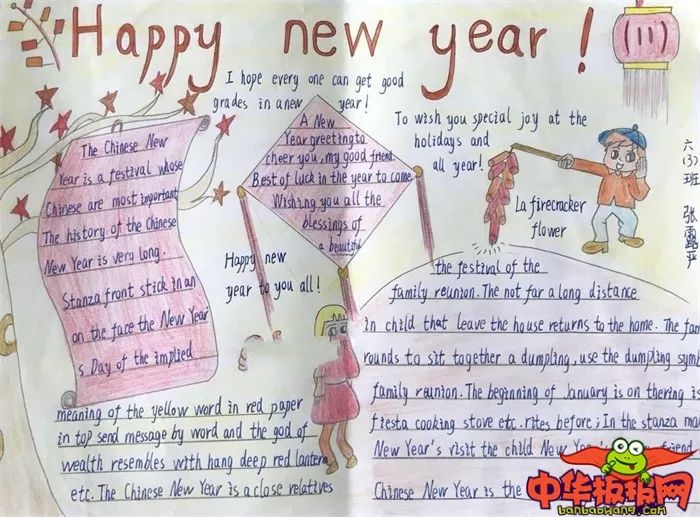 Happy new year!
(11)
I hope every one can get good
grades in a new year!
To wish you special joy at the
holidays and
all year!
六(3)班
张
La firecracker
flower
The Chinese New
Year is a festival whose
Chinese are most important
The history of the Chinese
New Year is very long.
Stanza front stick in an
on the face the New Year'
s Day of the implied
meaning of the yellow word in red paper
in top send message by word and the god of
wealth resembles with hang deep red lantern
etc. The Chinese New Year is a close relatives
A New
Year greeting to
cheer you, my good friend.
Best of luck in the year to come
Wishing you all the
blessings of
a beautiful
Happy new
year to you all!
the festival of the
family reunion. The not far a long distance
in child that leave the house returns to the home. The fam
rounds to sit together a dumpling, use the dumpling symb
family reunion. The beginning of January is on thering is
fiesta cooking stove etc. rites before; In the stanza ma
New Year's visit the child New Year's friend
Chinese New Year is the
中华板报网
banbaowang.com